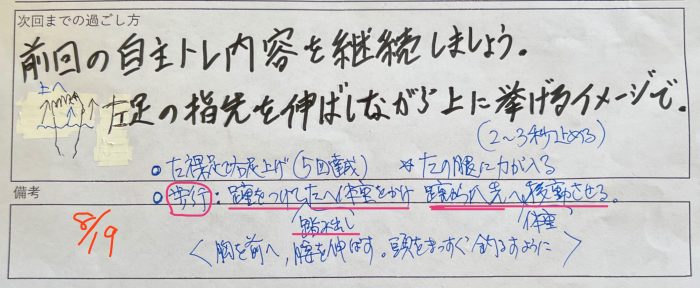 次回までの過ごし方
前回の自主トレ内容を継続しましょう。
上へ
左足の指先を伸ばしながら上に挙げるイメージで。
(2〜3秒止める)
○左裸足で右足上げ(5回達成) 左の腿に力が入る
備考
○歩行:踵をつけて左へ体重をかけ 踵から爪先へ移動させる。
踏み出し 体重
8/19
〈胸を前へ,膝を伸ばす。頭をまっすぐ釣るすように〉